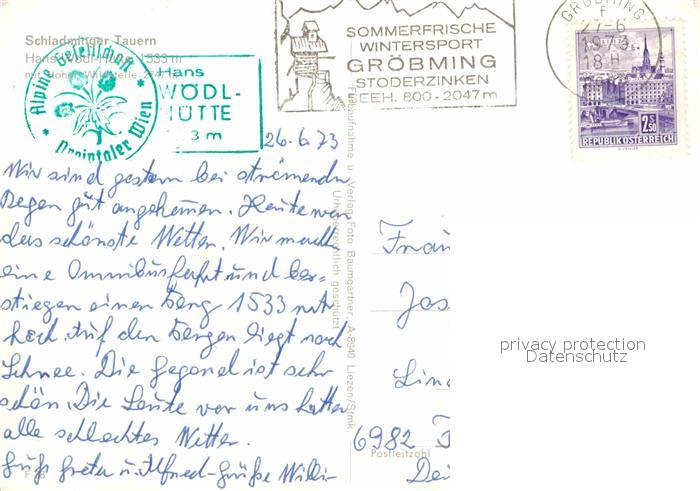 Schladminger Tauern
Hans Wödl-Hütte, 1533 m
mit Hoher Wildstelle, 2
Alpine Gesellschaft
Preintaler Wien
Hans
WÖDL-
HÜTTE
3 m
SOMMERFRISCHE
WINTERSPORT
GRÖBMING
STODERZINKEN
SEEH. 800 - 2047 m
GRÖBMING
27-6
1973
18
2.50
REPUBLIK ÖSTERREICH
26.6.73
Wir sind gestern bei strömenden
Regen gut angekommen. Heute war
das schönste Wetter. Wir machten
eine Omnibusfahrt und be-
stiegen einen Berg 1533 mtr
hoch. Auf den Bergen liegt noch
Schnee. Die Gegend ist sehr
schön. Die Leute vor uns hatten
alle schlechtes Wetter.
Grüße Greta u. Alfred - Grüße Willi -
u. Verlag Foto Baumgartner, A-8940 Liezen/Stmk.
Urheberrechtlich geschützt!
Frau
Jos
Lin
6982
Postleitzahl
Dei
privacy protection
Datenschutz